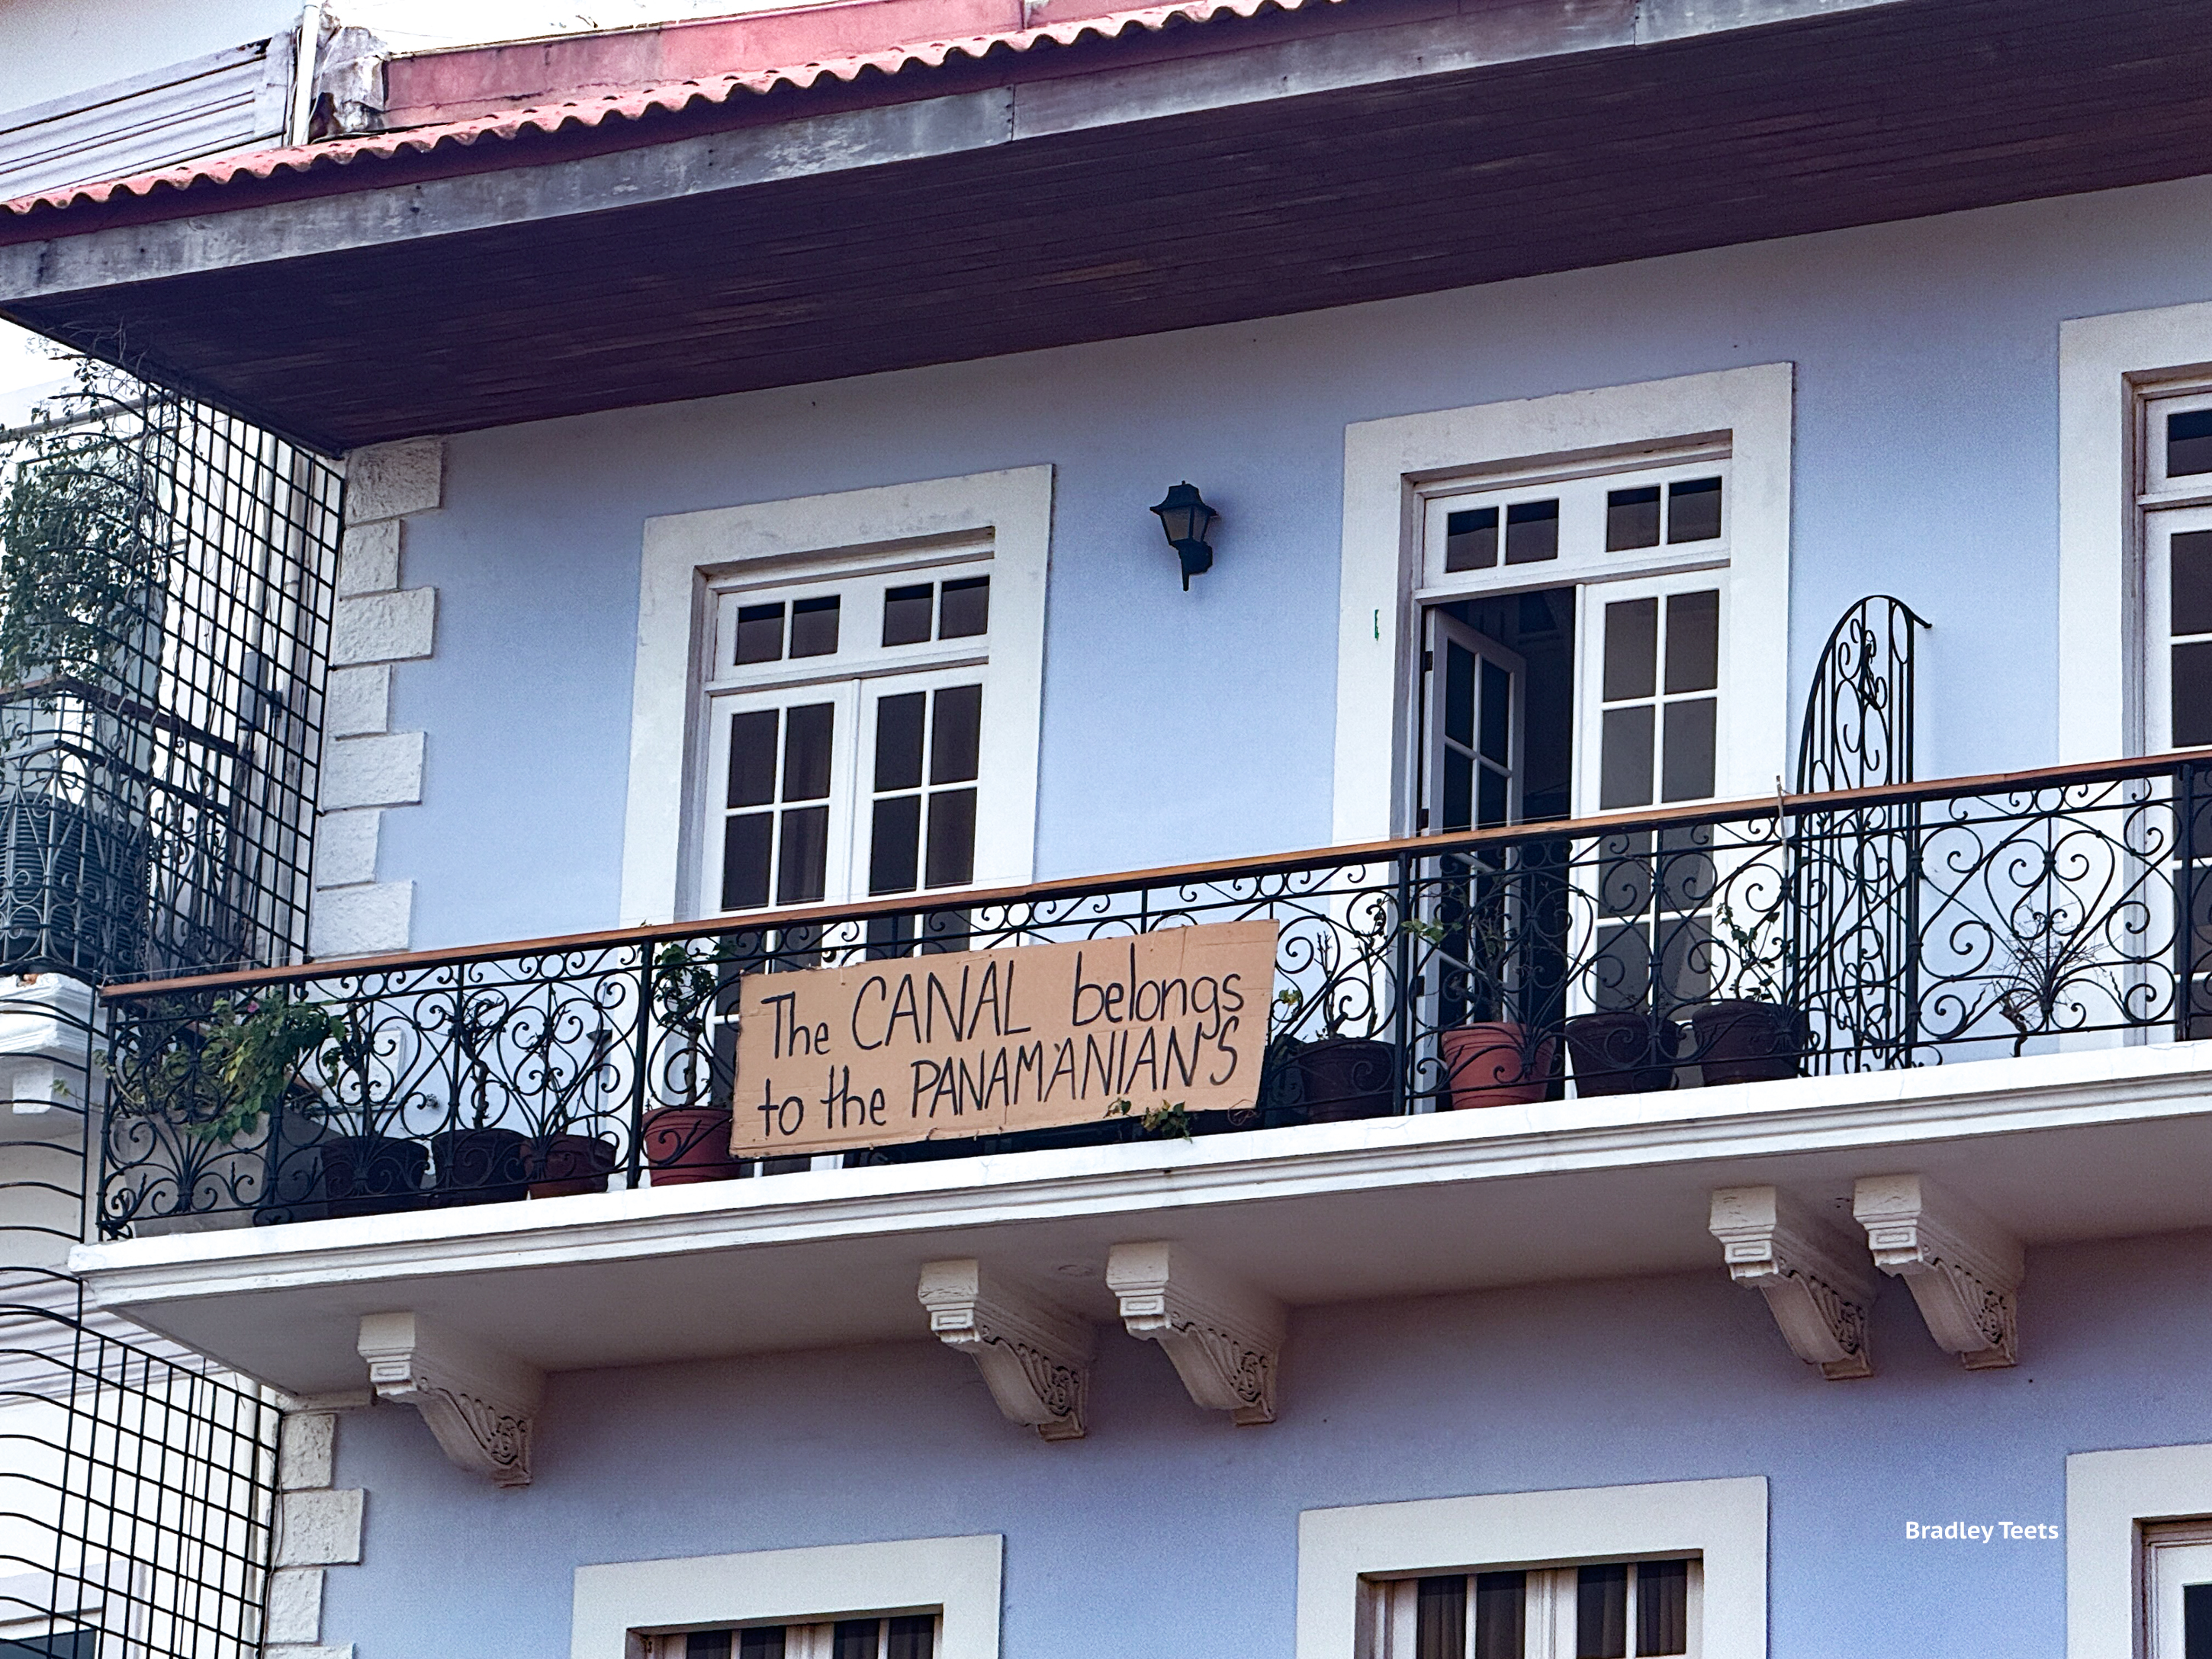 The CANAL belongs
to the PANAM'ANIAN'S
Bradley Teets